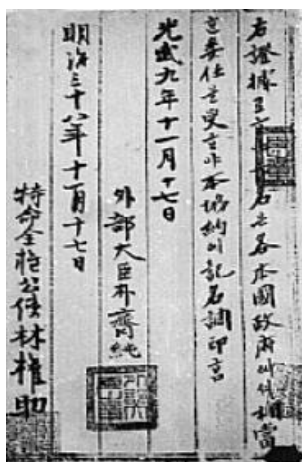 右證據로ᄒᆞ야下名은各本國政府에셔相當
ᄒᆞᆫ委任을受ᄒᆞ야本協約에記名調印ᄒᆞᆷ
光武九年十一月十七日
外部大臣朴齊純
明治三十八年十一月十七日
特命全權公使林權助